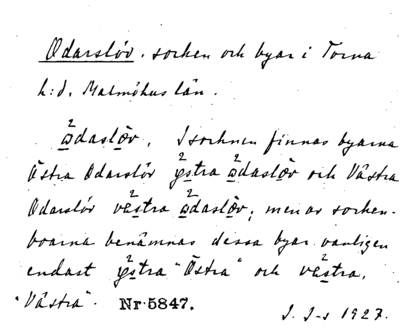 Odarslöv. socken och byar i Torna
h:d. Malmöhus län.
ądaslǫ̈v. I socknen finnas byarna
Östra Odarslöv y̨stra ądaslǫ̈v och Västra
Odarslöv vęstra ądaslǫ̈v; men av socken-
boarna benämnas dessa byar vanligen
endast y̨stra "Östra" och vęstra,
"Västra". Nr 5847.
1927.